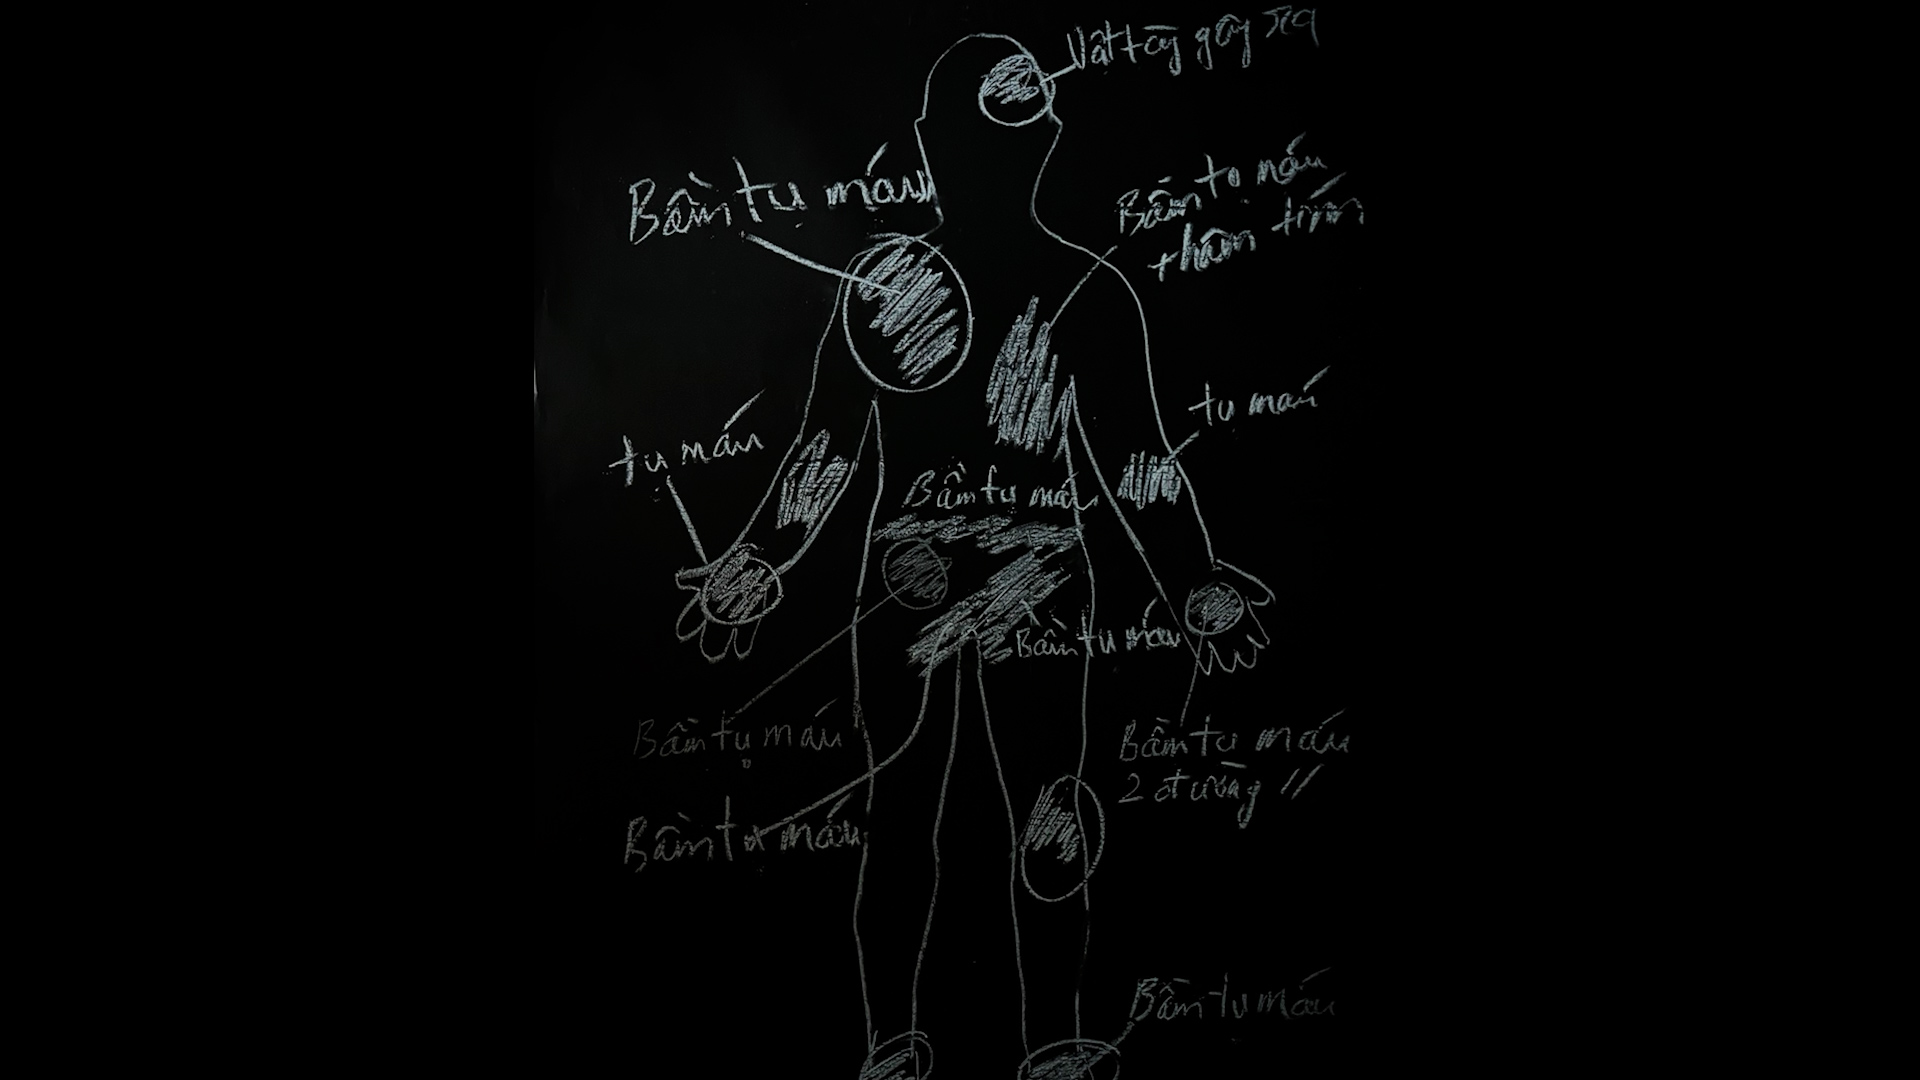 Vật tày gây ra
Bầm tụ máu
Bầm tụ máu
+ thâm tím
tụ máu
tụ máu
Bầm tụ máu
Bầm tụ máu
Bầm tụ máu
Bầm tụ máu
2 đường //
Bầm tụ máu
Bầm tụ máu